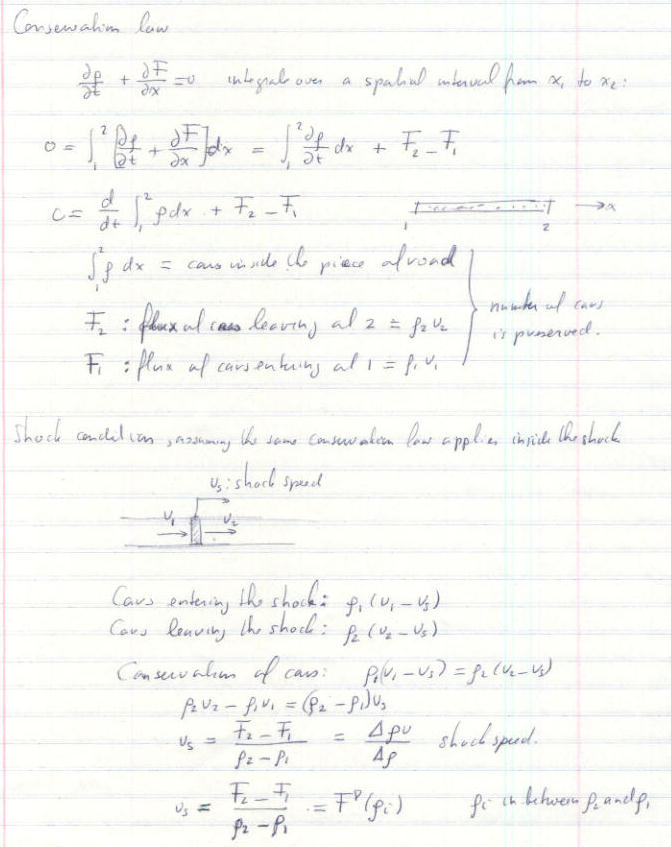 Conservation law
∂ρ/∂t + ∂F/∂x = 0 integrate over a spatial interval from x₁ to x₂:
0 = ∫₁² [∂ρ/∂t + ∂F/∂x] dx = ∫₁² ∂ρ/∂t dx + F₂ - F₁
0 = d/dt ∫₁² ρ dx + F₂ - F₁
1 2 → x
∫₁² ρ dx = cars inside the piece of road
F₂ : flux of cars leaving at 2 = ρ₂ v₂
F₁ : flux of cars entering at 1 = ρ₁ v₁
number of cars
is preserved.
Shock condition, assuming the same conservation law applies inside the shock
vₛ: shock speed
v₁ v₂
Cars entering the shock: ρ₁ (v₁ - vₛ)
Cars leaving the shock: ρ₂ (v₂ - vₛ)
Conservation of cars: ρ₁(v₁ - vₛ) = ρ₂ (v₂ - vₛ)
ρ₂v₂ - ρ₁v₁ = (ρ₂ - ρ₁)vₛ
vₛ = (F₂ - F₁)/(ρ₂ - ρ₁) = Δρv/Δρ shock speed.
vₛ = (F₂ - F₁)/(ρ₂ - ρ₁) = F'(ρᵢ) ρᵢ in between ρ₂ and ρ₁